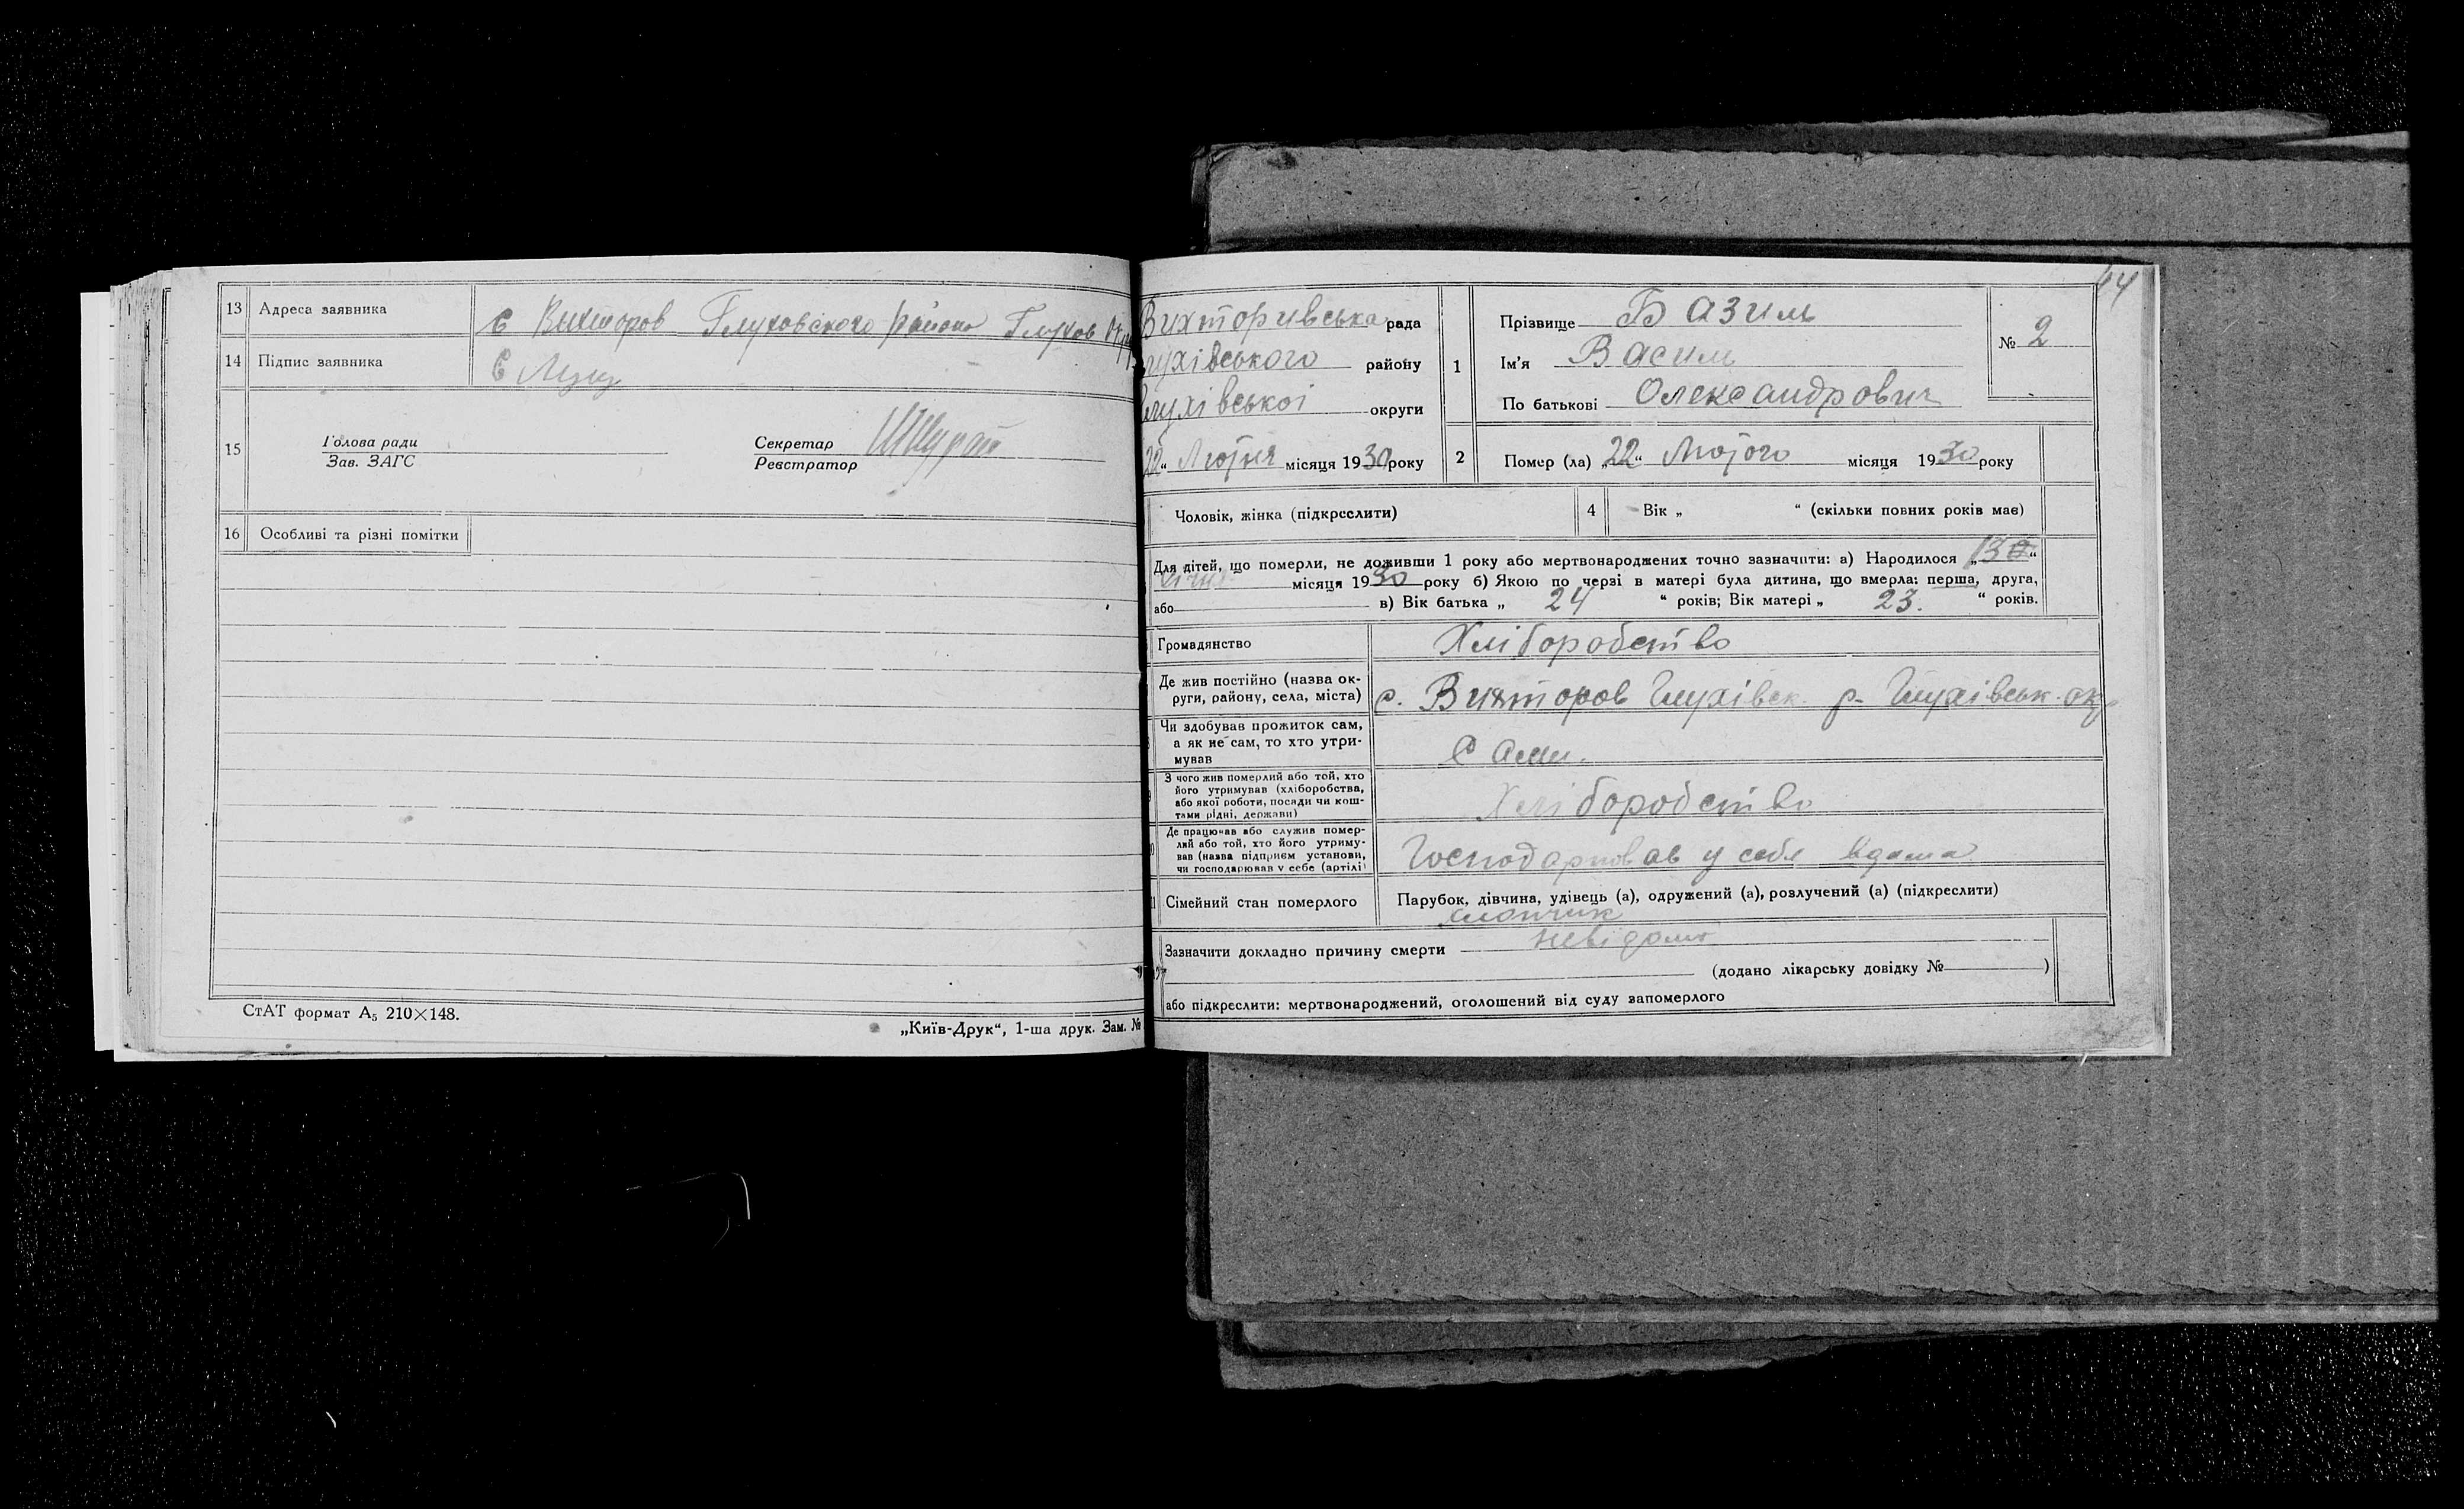 13 Адреса заявника с Вихторов Глуховского района Глухов окр
14 Підпис заявника
15 Голова ради
Зав. ЗАГС
Секретар
Реєстратор
16 Особливі та різні помітки
СтАТ формат А5 210×148.
„Київ-Друк“, 1-ша друк. Зам. №
44
Вихторивська рада
лухівського району
лухівської округи
„22“ Лютня місяця 1930 року
1 Прізвище Базиль
Ім'я Василь
По батькові Олександрович
№ 2
2 Помер (ла) „22“ Лютого місяця 1930 року
Чоловік, жінка (підкреслити)
4 Вік „ “ (скільки повних років має)
Для дітей, що померли, не доживши 1 року або мертвонароджених точно зазначити: а) Народилося „13“
січня місяця 1930 року б) Якою по черзі в матері була дитина, що вмерла: перша, друга,
або в) Вік батька „ 24 “ років; Вік матері „ 23. “ років.
Громадянство Хліборобство
Де жив постійно (назва ок-
руги, району, села, міста) с. Вихторов Глухівськ. р- Глухівськ. окр
Чи здобував прожиток сам,
а як не сам, то хто утри-
мував Сами.
З чого жив померлий або той, хто
його утримував (хліборобства,
або якої роботи, посади чи кош-
тами рідні, держави) Хліборобство
Де працював або служив помер-
лий або той, хто його утриму-
вав (назва підприєм установи,
чи господарював у себе (артілі) Господарював у себе вдома
11 Сімейний стан померлого Парубок, дівчина, удівець (а), одружений (а), розлучений (а) (підкреслити)
хлопчик
Зазначити докладно причину смерти невідомо
(додано лікарську довідку № )
або підкреслити: мертвонароджений, оголошений від суду запомерлого